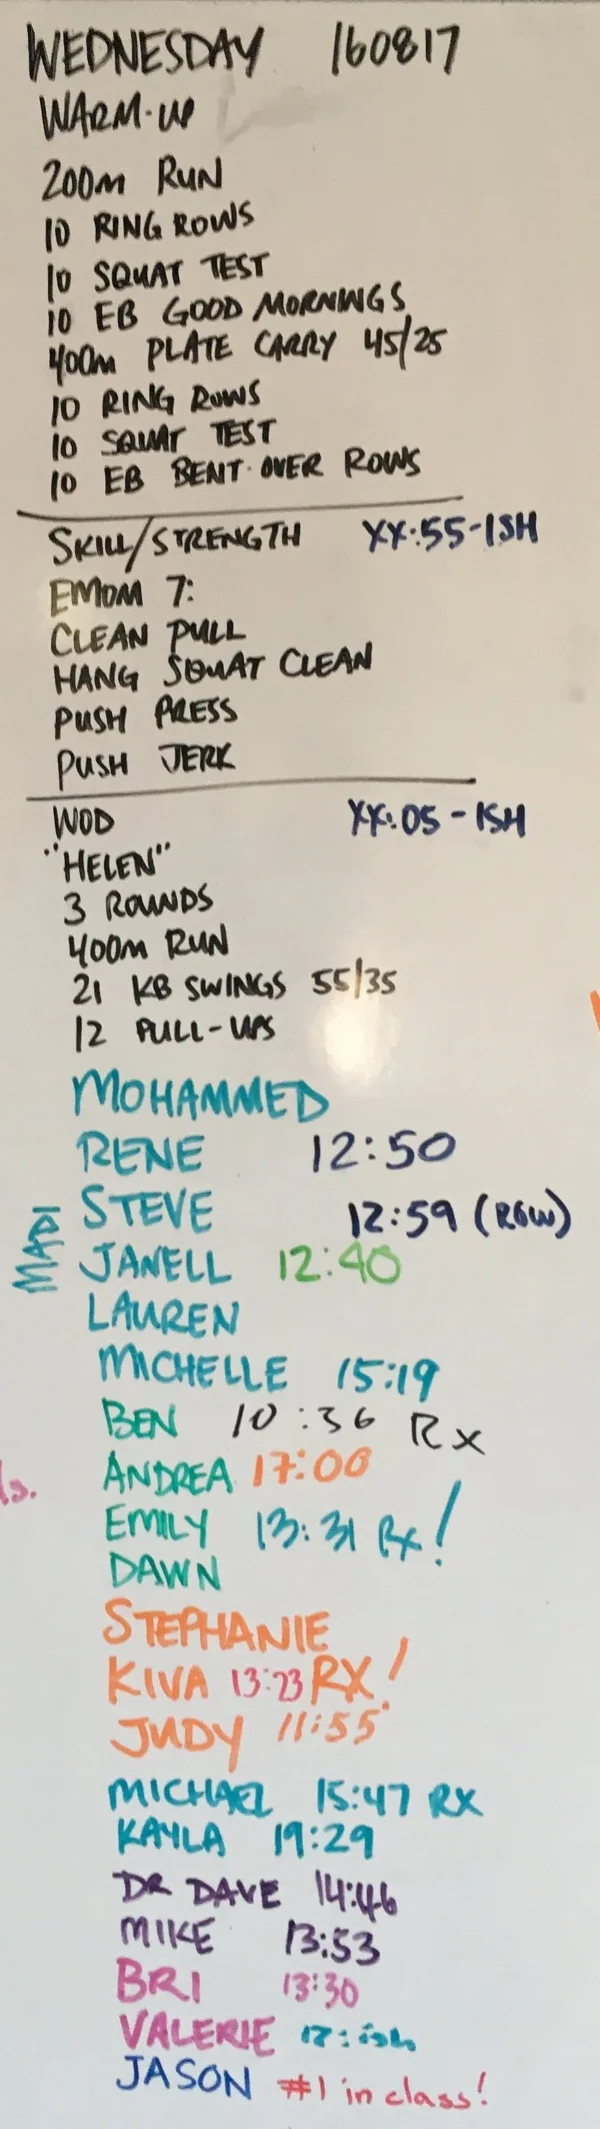 WEDNESDAY 160817
WARM-UP
200m RUN
10 RING ROWS
10 SQUAT TEST
10 EB GOOD MORNINGS
400m PLATE CARRY 45/25
10 RING ROWS
10 SQUAT TEST
10 EB BENT-OVER ROWS
SKILL/STRENGTH XX:55-ISH
EMOM 7:
CLEAN PULL
HANG SQUAT CLEAN
PUSH PRESS
PUSH JERK
WOD XX:05-ISH
"HELEN"
3 ROUNDS
400m RUN
21 KB SWINGS 55/35
12 PULL-UPS
MOHAMMED
RENE 12:50
STEVE 12:59 (ROW)
MADI
JANELL 12:40
LAUREN
MICHELLE 15:19
BEN 10:36 Rx
ANDREA 17:00
EMILY 13:31 Rx!
DAWN
STEPHANIE
KIVA 13:23 RX!
JUDY 11:55
MICHAEL 15:47 RX
KAYLA 19:29
DR DAVE 14:46
MIKE 13:53
BRI 13:30
VALERIE :ish
JASON #1 in class!